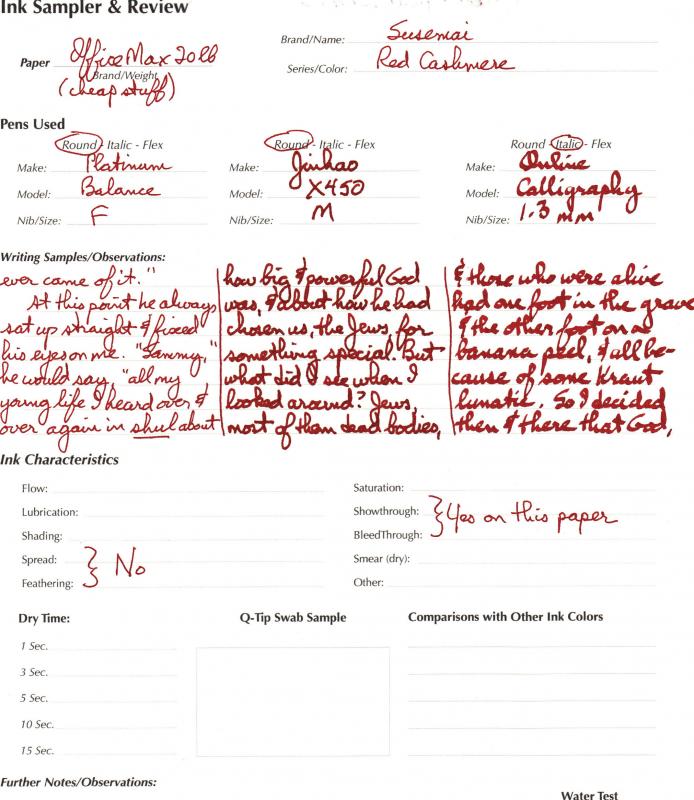 Ink Sampler & Review
Brand/Name: Susemai
Paper OfficeMax 20lb
Brand/Weight
(cheap stuff)
Series/Color: Red Cashmere
Pens Used
Round - Italic - Flex
Make: Platinum
Model: Balance
Nib/Size: F
Round - Italic - Flex
Make: Jinhao
Model: X450
Nib/Size: M
Round - Italic - Flex
Make: Online
Model: Calligraphy
Nib/Size: 1.3 mm
Writing Samples/Observations:
ever came of it."
At this point he always
sat up straight & fixed
his eyes on me. "Sammy,"
he would say, "all my
young life I heard over &
over again in shul about
how big & powerful God
was, & about how he had
chosen us, the Jews, for
something special. But
what did I see when I
looked around? Jews,
most of them dead bodies,
& those who were alive
had one foot in the grave
& the other foot on a
banana peel, & all be-
cause of some Kraut
lunatic. So I decided
then & there that God,
Ink Characteristics
Flow:
Lubrication:
Shading:
Spread:
Feathering:
No
Saturation:
Showthrough:
BleedThrough:
Yes on this paper
Smear (dry):
Other:
Dry Time:
1 Sec.
3 Sec.
5 Sec.
10 Sec.
15 Sec.
Q-Tip Swab Sample
Comparisons with Other Ink Colors
Further Notes/Observations:
Water Test